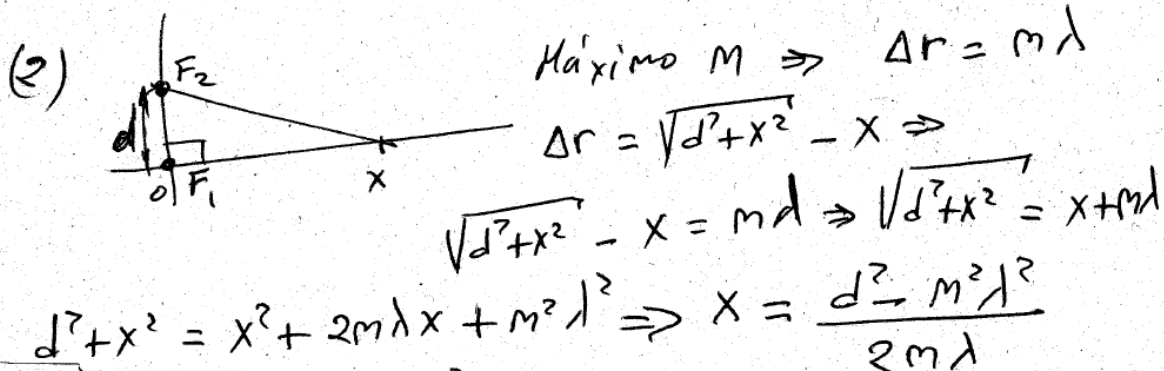 (2) F₂ Máximo m ⇒ Δr = mλ
d Δr = √(d²+x²) - x ⇒
0 F₁ x
√(d²+x²) - x = mλ ⇒ √(d²+x²) = x+mλ
d²+x² = x²+ 2mλx + m²λ² ⇒ x = (d² - m²λ²)/(2mλ)